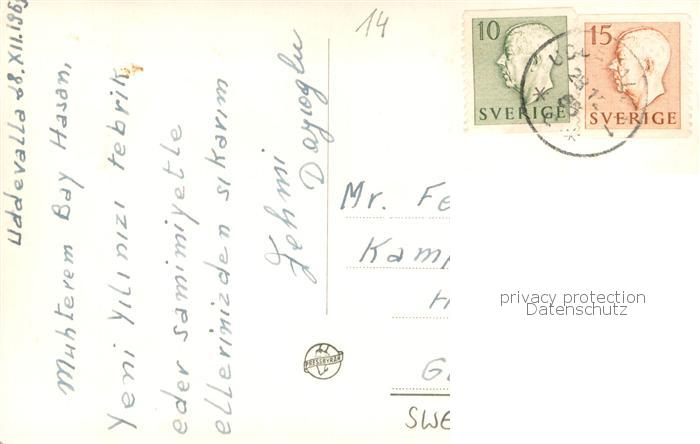 Uddevalla 28.XII.1965
Muhterem Bay Hasan,
Yeni Yılınızı tebrik
eder samimiyetle
ellerinizden sıkarım
Fehmi
14
10
SVERIGE
15
SVERIGE
Mr. Fe
Kamp
G
SWE
PRESSBYRÅN
privacy protection
Datenschutz